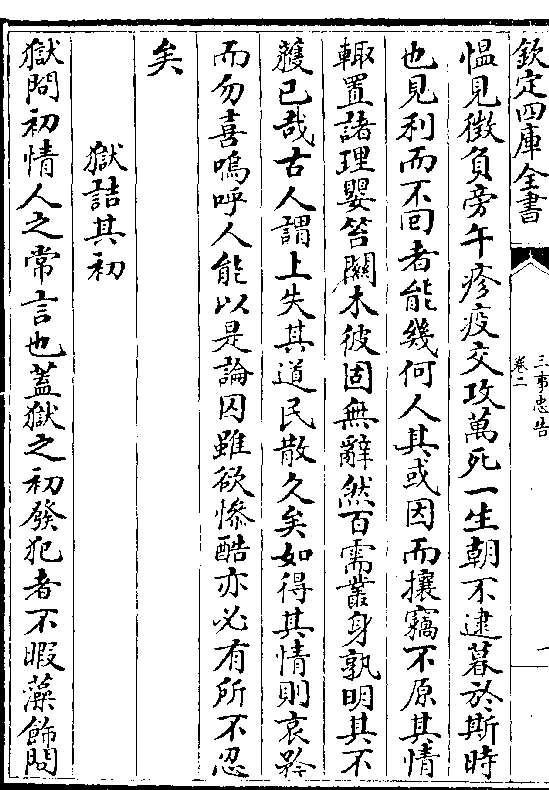 欽定四庫全書
三事忠告
卷二
一
愠見徴負旁午疹疫交攻萬死一生朝不逮暮於斯時
也見利而不回者能幾何人其或因而攘竊不原其情
輙置諸理嬰笞關木彼固無辭然百需叢身孰明其不
獲已哉古人謂上失其道民散久矣如得其情則哀矜
而勿喜嗚呼人能以是論囚雖欲慘酷亦必有所不忍
矣
獄詰其初
獄問初情人之常言也蓋獄之初發犯者不暇藻飾問